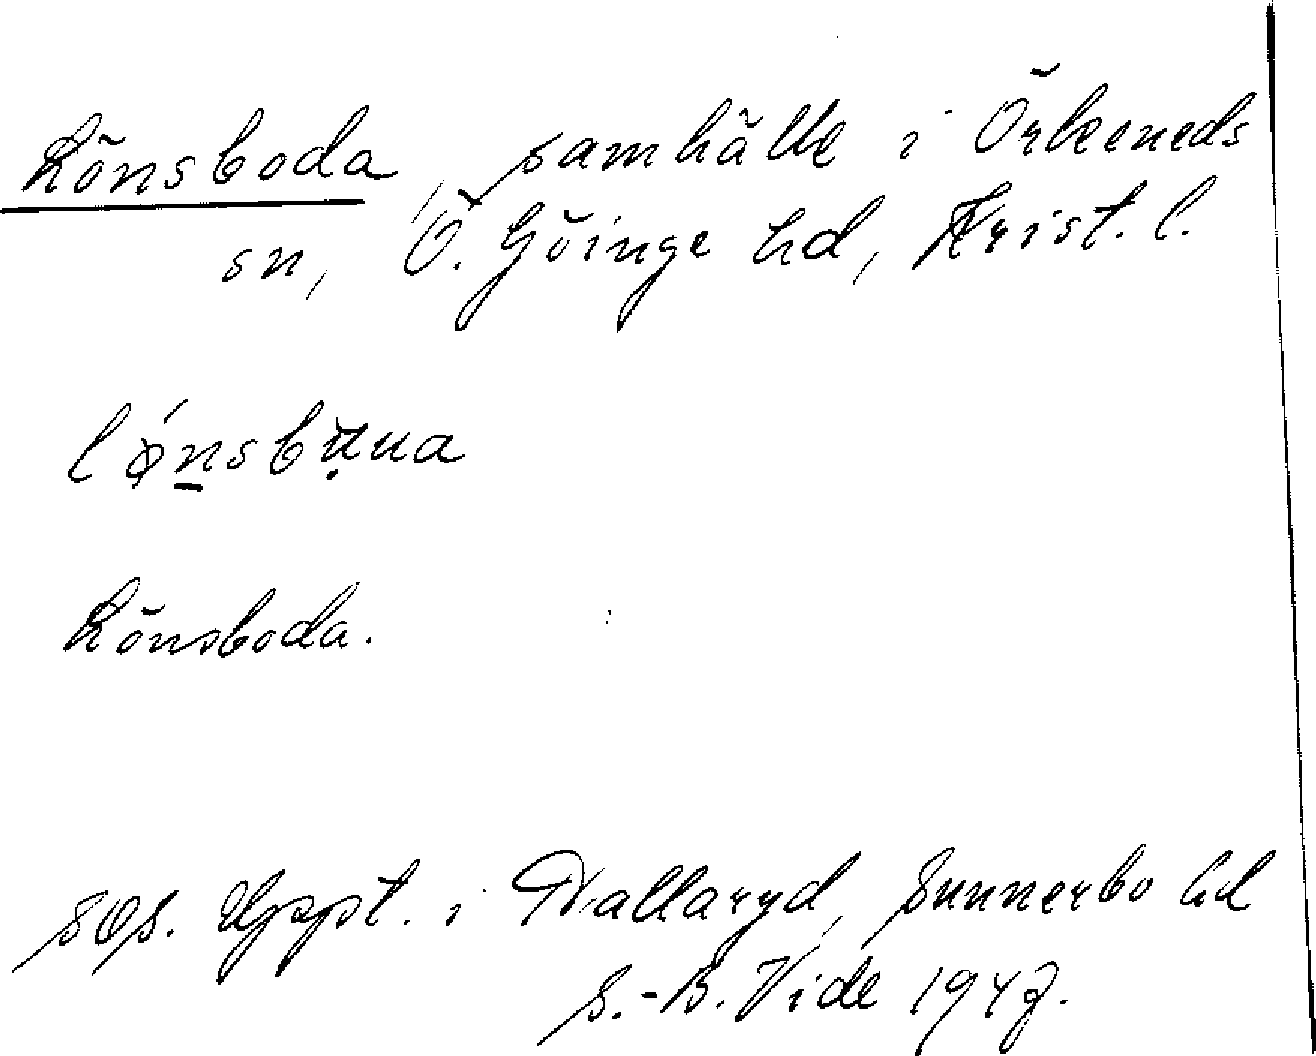 Lönsboda, samhälle i Örkeneds
sn, Ö. Göinge hd, Krist. l.
Lönsboda.
Uppt. i Hallaryd, Sunnerbo hd
S.-B. Vide 1947.